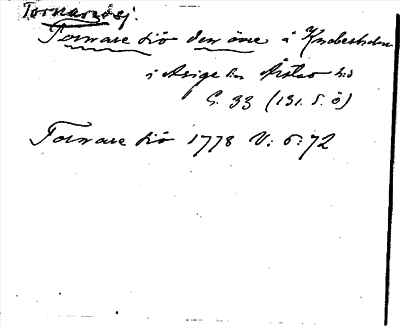 Tornaresjö.
Tornare siö den övre i Knobesholm
i Asige sn Årstad hd
S. 33 (131. 5. ö)
Tornare siö 1778 V: 6: 72